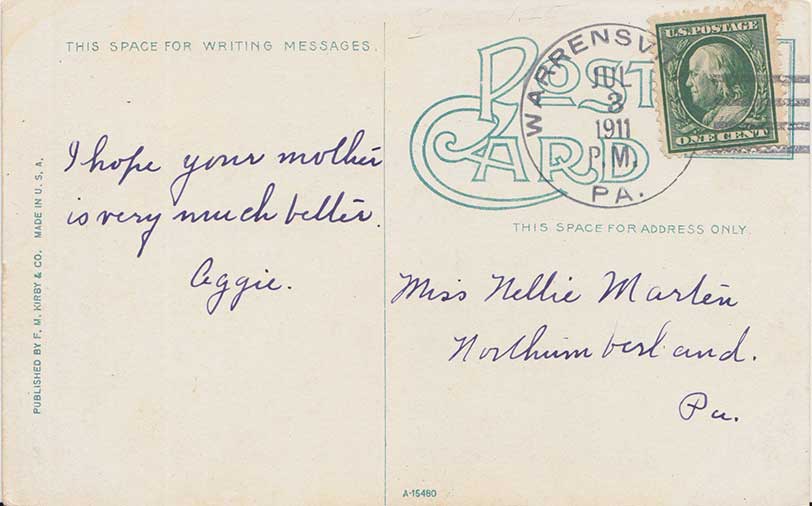 THIS SPACE FOR WRITING MESSAGES.
I hope your mother
is very much better.
Aggie.
PUBLISHED BY F. M. KIRBY & CO. MADE IN U. S. A.
POST
CARD
WARRENSV
JUL
3
1911
P.M.
PA.
U.S. POSTAGE
ONE CENT
THIS SPACE FOR ADDRESS ONLY.
Miss Nellie Martin
Northumberland.
Pa.
A-15480